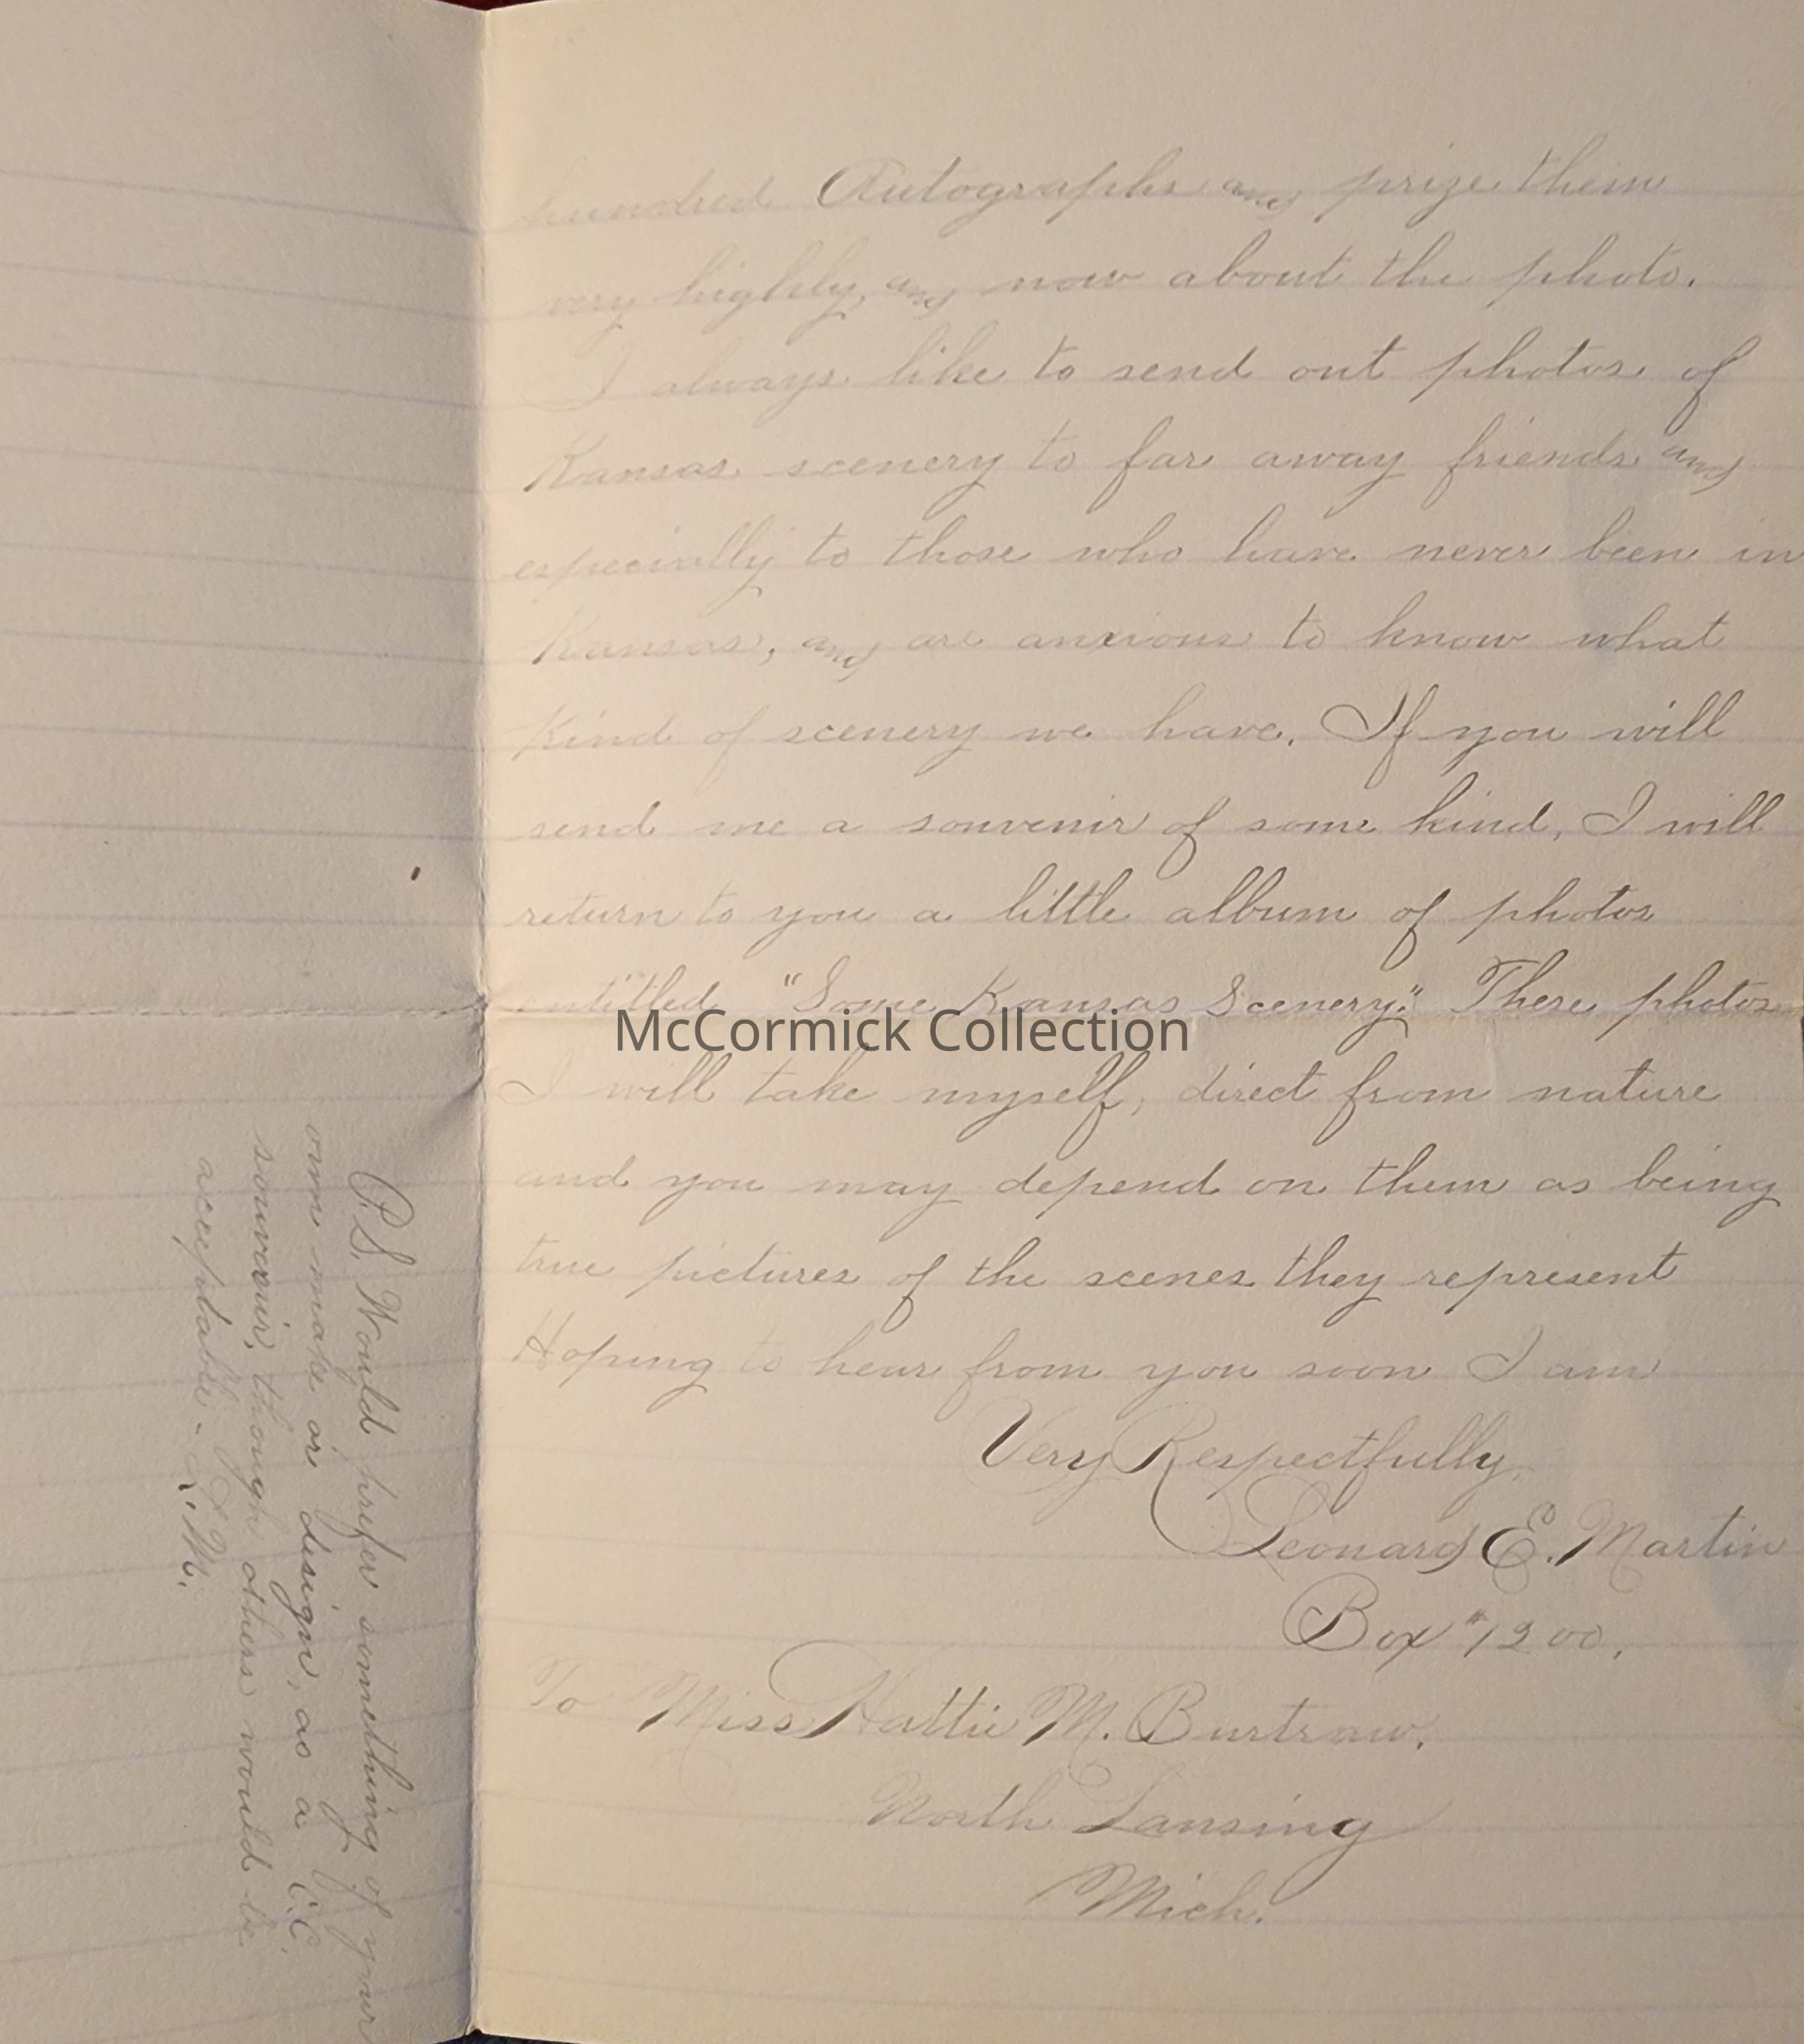 hundred Autographs and prize them
very highly, and now about the photo.
I always like to send out photos of
Kansas scenery to far away friends and
especially to those who have never been in
Kansas, and are anxious to know what
kind of scenery we have. If you will
send me a souvenir of some kind, I will
return to you a little album of photos
entitled "Some Kansas Scenery." These photos
McCormick Collection
I will take myself, direct from nature
and you may depend on them as being
true pictures of the scenes they represent
Hoping to hear from you soon I am
Very Respectfully,
Leonard E. Martin
Box #1200.
To Miss Hattie M. Burtraw.
North Lansing
Mich.
P.S. Would prefer something of your
own make or design, as a C.C.
souvenir, though others would be
acceptable - L.M.